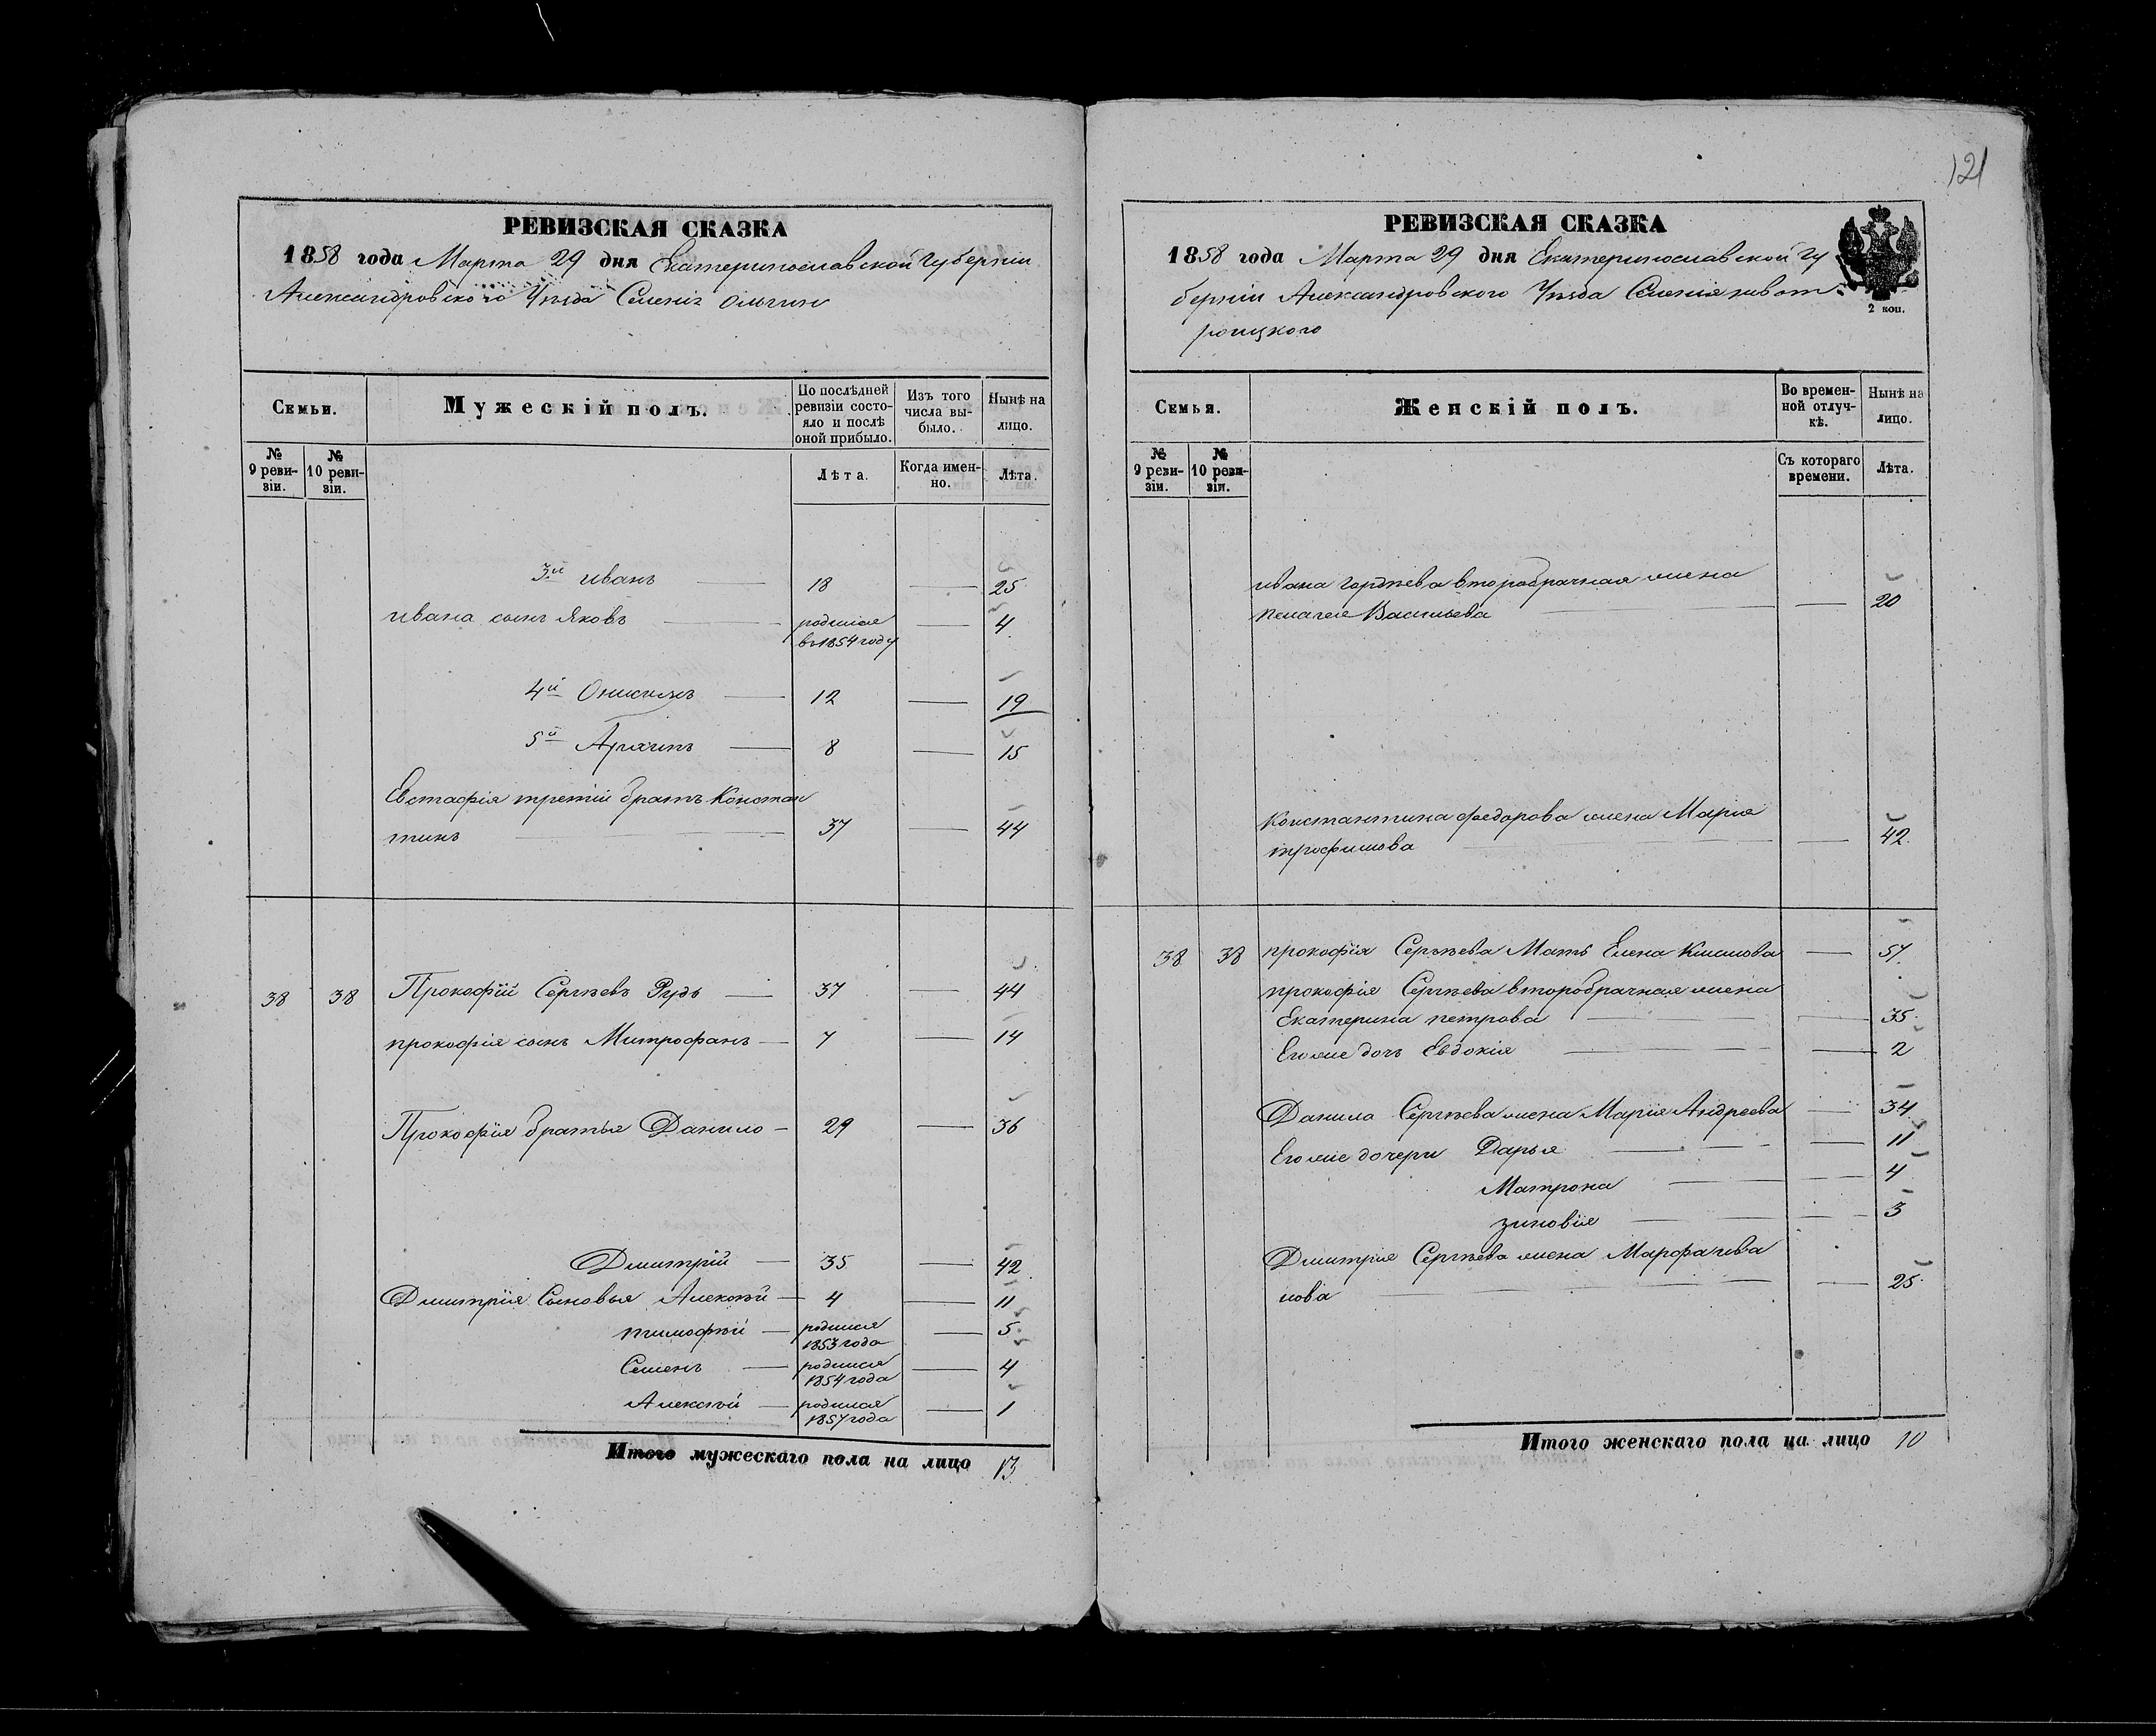 121
РЕВИЗСКАЯ СКАЗКА
1858 года Марта 29 дня Екатеринославской Губерніи
Александровского Уѣзда Селенія
Семьи.
Мужескій полъ.
По послѣдней ревизіи состо-
яло и послѣ
оной прибыло.
Изъ того
числа вы-
было.
Нынѣ на
лицо.
№
9 реви-
зіи.
№
10 реви-
зіи.
Лѣта.
Когда имен-
но.
Лѣта.
3й иванъ — 18 — 25
ивана сынъ Яковъ — родился
въ 1854 году — 4
4й Онисимъ — 12 — 19
5й Архипъ — 8 — 15
Евстафія третій братъ Констан
тинъ — 37 — 44
38 38 Прокофій Сергѣевъ Рудь — 37 — 44
прокофія сынъ Митрофанъ — 7 — 14
Прокофія братья Данило — 29 — 36
Дмитрій — 35 — 42
Дмитрія Сыновья Алексѣй — 4 — 11
тимофѣй — родился
1853 года — 5
Семенъ — родился
1854 года — 4
Алексѣй — родился
1857 года — 1
Итого мужескаго пола на лицо 13
РЕВИЗСКАЯ СКАЗКА
1858 года Марта 29 дня Екатеринославской Гу
берніи Александровского Уѣзда Селенія
роицкого
2 коп.
Семья.
Женскій полъ.
Во времен-
ной отлуч-
кѣ.
Нынѣ на
лицо.
№
9 реви-
зіи.
№
10 реви-
зіи.
Съ котораго
времени.
Лѣта.
ивана гордѣева второбрачная жена
пелагея Васильева — 20
Константина федорова жена Марія
трофимова — 42
38 38 прокофія Сергѣева Мать Елена Климова — 57
прокофія Сергѣева второбрачная жена
Екатерина петрова — 35
Его же дочь Евдокія — 2
Данила Сергѣева жена Марія Андреева — 34
Его же дочери Дарья — 11
Матрона — 4
зиновія — 3
Дмитрія Сергѣева жена Марфа ива
нова — 25
Итого женскаго пола на лицо 10